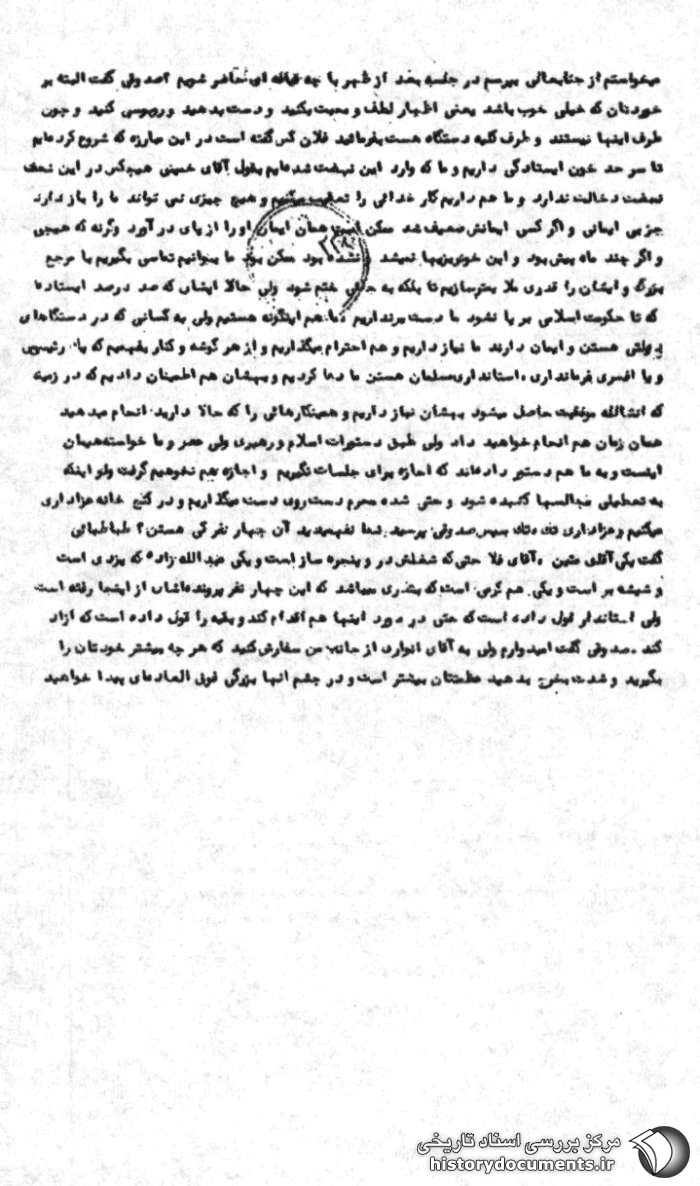 میخواستم از جنابعالی بپرسم در جلسه بعد از ظهر با چه قیافه ای حاضر شویم ؟ صدوقی گفت البته بر
خوردتان که خیلی خوب باشد یعنی اظهار لطف و محبت بکنید و دست بدهید و روبوسی کنید و چون
طرف اینها نیستند و طرف کلیه دستگاه هست بفرمائید فلان کس گفته است در این مبارزه که شروع کرده‌ایم
تا سر حد خون ایستادگی داریم و ما که وارد این نهضت شده‌ایم بقول آقای خمینی هیچکس در این نهضت
نهضت دخالت ندارد و ما هم داریم کار خدائی را تعقیب میکنیم و هیچ چیزی نمی تواند ما را باز دارد
جز بی ایمانی و اگر کسی ایمانش ضعیف شد ممکن است همان ایمان او را از پای در آورد وگرنه که هیچی
و اگر چند ماه پیش بود و این خونریزیها نمیشد و نشده بود ممکن بود ما بتوانیم تماسی بگیریم با مرجع
بزرگ و ایشان را قدری ملایمتر سازیم تا بلکه به جائی ختم شود ولی حالا ایشان که صد درصد ایستاده
که تا حکومت اسلامی بر پا نشود ما دست برنداریم ما هم اینگونه هستیم ولی به کسانی که در دستگاههای
دولتی هستن و ایمان دارند ما نیاز داریم و هم احترام میگذاریم و از هر گوشه و کنار بفهمیم که یک رئیسی
و یا افسری فرمانداری ، استانداری مسلمان هستن ما دعا کردیم و بهشان هم اطمینان دادیم که در زمینه
که انشالله موفقیت حاصل میشود بهشان نیاز داریم و همینکارهائی را که حالا دارید انجام میدهید
همان زمان هم انجام خواهید داد ولی طبق دستورات اسلام و رهبری ولی عصر و ما خواسته‌هیمان
اینست و به ما هم دستور داده‌اند که اجازه برای جلسات نگیریم و اجازه هم نخواهیم گرفت ولو اینکه
به تعطیلی مجالسها کشیده شود و حتی شده محرم دست روی دست میگذاریم و در کنج خانه عزاداری
میکنیم و عزاداری تک تک سپس صدوقی پرسید شما نفهمیدید آن چهار نفر کی هستن ؟ طباطبائی
گفت یکی آقای متین ، آقای فلاحتی که شغلش در و پنجره ساز است و یکی عبدالله زاده که یزدی است
و شیشه بر است و یکی هم کرمی است که بقدری میباشد که این چهار نفر پرونده‌اشان از اینجا رفته است
ولی استاندار قول داده است که حتی در مورد اینها هم اقدام کند و بقیه را قول داده است که آزاد
کند ، صدوقی گفت امیدوارم ولی به آقای انواری از جانب من سفارش کنید که هر چه بیشتر خودتان را
بگیرید و شدت بخرج بدهید عظمتتان بیشتر است و در چشم آنها بزرگی فوق العاده‌ای پیدا خواهید
مرکز بررسی اسناد تاریخی
historydocuments.ir